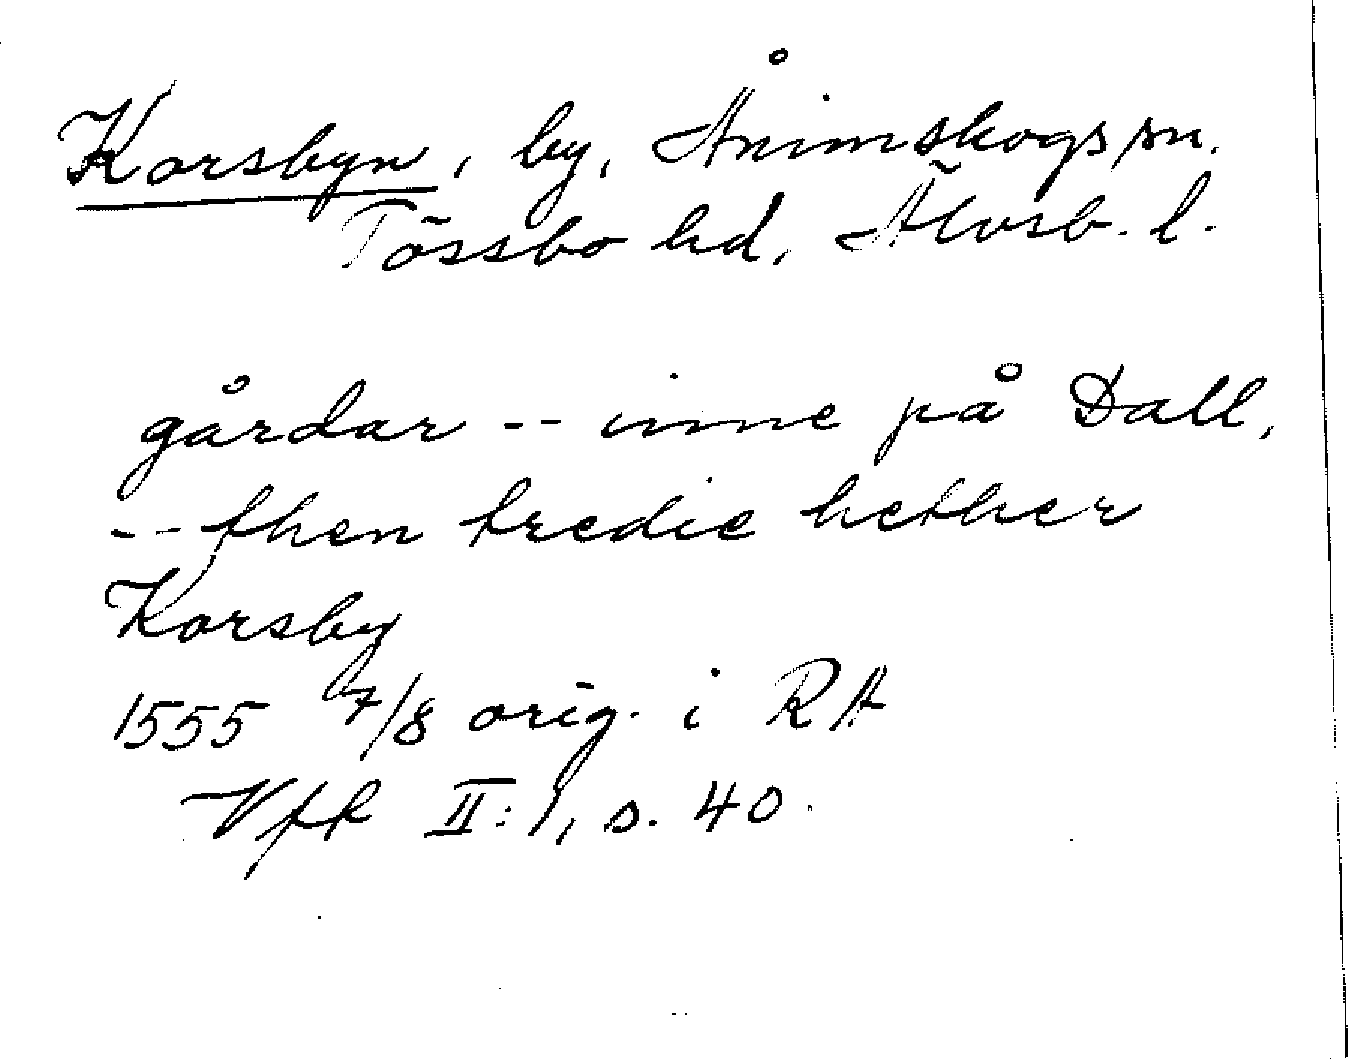 Korsbyn, by, Ånimskogs sn.
Tössbo hd, Älvsb. l.
gårdar -- inne på Dall,
-- then tredie hether
Korsby
1555 7/8 orig. i RA
VfR II:1, s. 40.